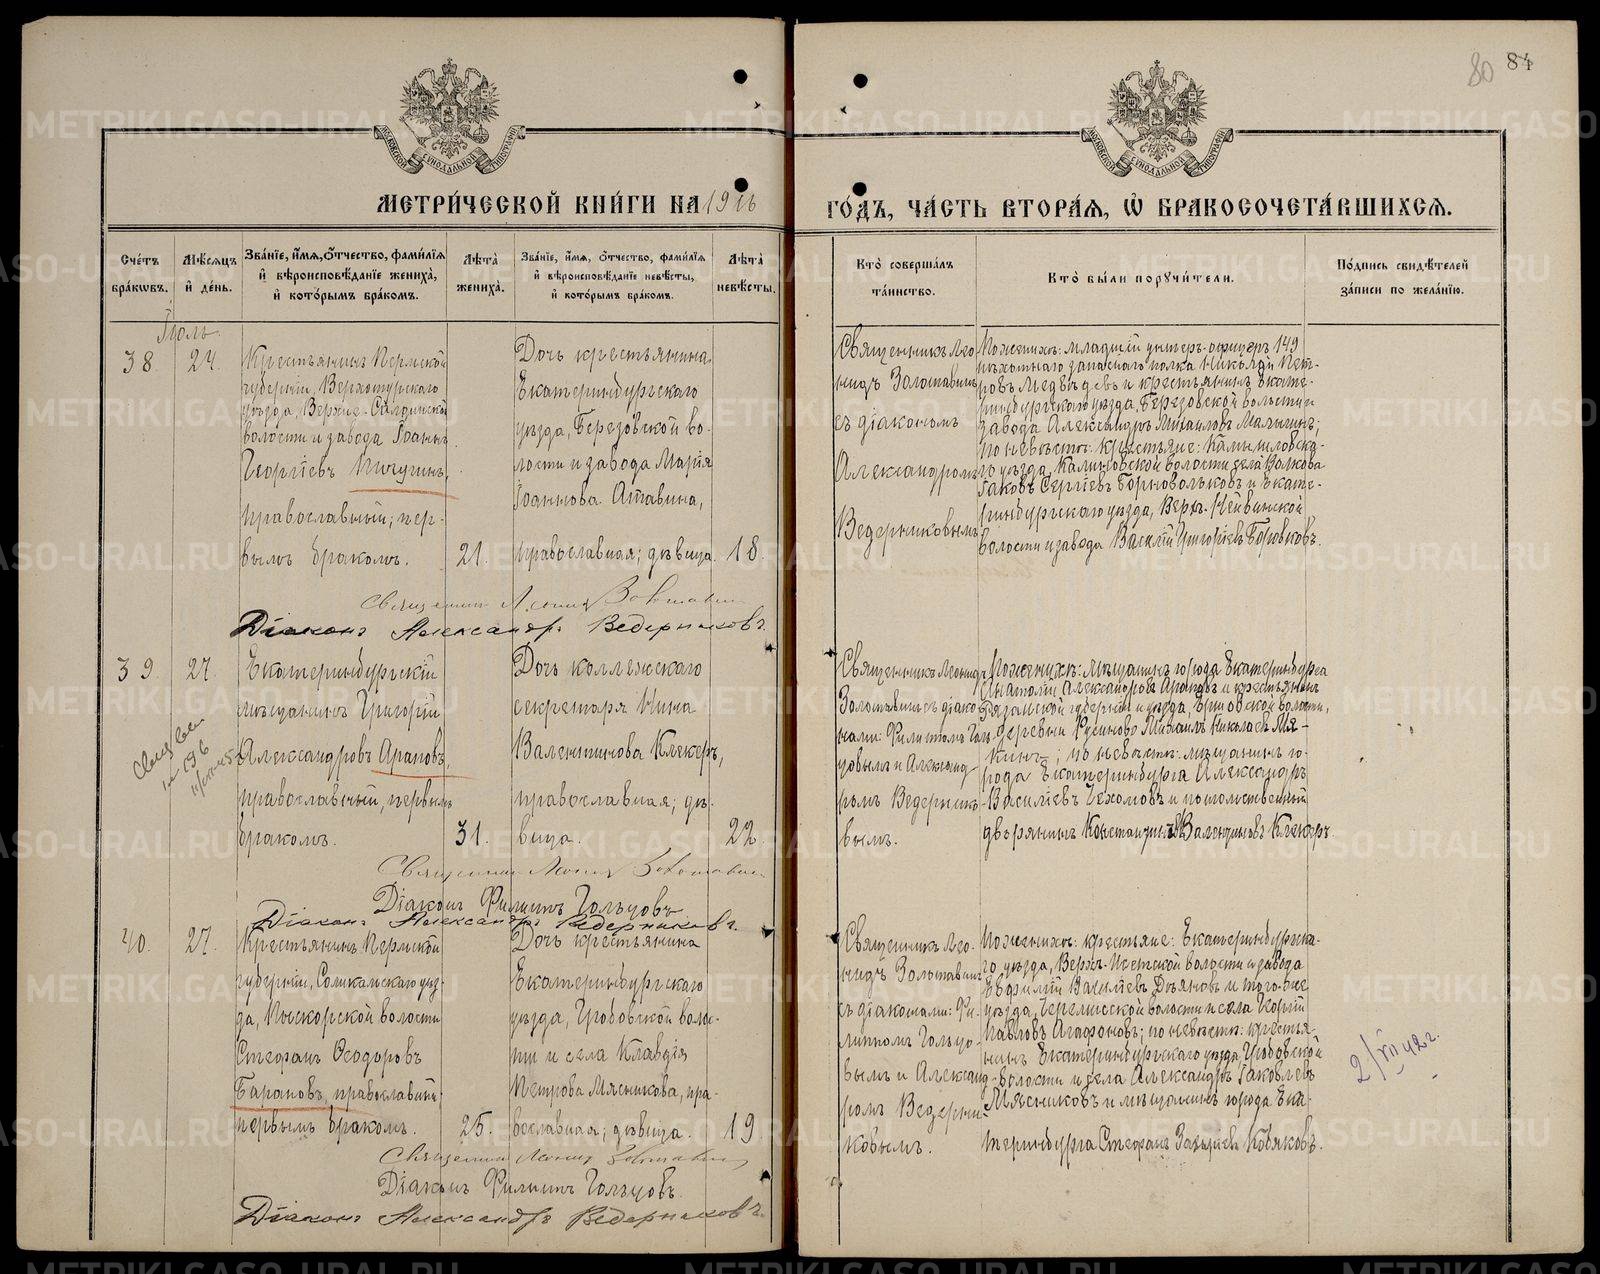 80 84
МОСКОВСКОЙ СУНОДАЛЬНОЙ ТИПОГРАФІИ
МОСКОВСКОЙ СУНОДАЛЬНОЙ ТИПОГРАФІИ
МЕТРИ́ЧЕСКОЙ КНИ́ГИ НА 1916
ГО́ДЪ, ЧА́СТЬ ВТОРА́Я, Ѽ БРАКОСОЧЕТА́ВШИХСЯ.
Сче́тъ бра́кѡвъ.
Мѣ́сяцъ и҆ де́нь.
Зва́нїе, и҆́мя, ѻ҆́тчество, фами́лїя и҆ вѣроисповѣ́данїе жениха̀, и҆ кото́рымъ бра́комъ.
Лѣ́та жениха̀.
Зва́нїе, и҆́мя, ѻ҆́тчество, фами́лїя и҆ вѣроисповѣ́данїе невѣ́сты, и҆ кото́рымъ бра́комъ.
Лѣ́та невѣ́сты.
Кто̀ соверша́лъ та́инство.
Кто̀ бы́ли поручи́тели.
По́дпись свидѣ́телей за́писи по жела́нїю.
Іюль.
38
24.
Крестьянинъ Пермской
губерніи, Верхотурскаго
уѣзда, Верхне-Салдинской
волости и завода Іоаннъ
Георгіевъ Пичугинъ,
православный; пер-
вымъ бракомъ.
21.
Дочь крестьянина
Екатеринбургскаго
уѣзда, Березовской во-
лости и завода Марія
Іоаннова Атавина,
православная; дѣвица.
18.
Священникъ Лео-
нидъ Золотавинъ
съ діакономъ
Александромъ
Ведерниковымъ
По женихѣ: младшій унтеръ-офицеръ 149
пѣхотнаго запаснаго полка Николай Пет-
ровъ Медвѣдевъ и крестьянинъ Екате-
ринбургскаго уѣзда, Березовской волости и
завода Александръ Михаиловъ Малыгинъ;
по невѣстѣ: крестьяне: Камышловска-
го уѣзда, Калиновской волости села Волкова
Іаковъ Сергіевъ и Екате-
ринбургскаго уѣзда, Верхъ-Нейвинской
волости и завода Василій Григоріевъ
Священникъ Леонидъ Золотавинъ
Діаконъ Александръ Ведерниковъ.
39
27.
Екатеринбургскій
мѣщанинъ Григорій
Александровъ Араповъ,
православный, первымъ
бракомъ.
31.
Дочь коллежскаго
секретаря Нина
Валентинова Клекеръ,
православная; дѣ-
вица.
22.
Священникъ Леонидъ
Золотавинъ съ діако-
нами: Филиппомъ Голь-
цовымъ и Александ-
ромъ Ведернико-
вымъ.
По женихѣ: мѣщанинъ города Екатеринбурга
Анатолій Александровъ Араповъ и крестьянинъ
Рязанской губерніи и уѣзда, волости,
деревни Русиново Михаилъ Николаевъ Мя-
кинъ; по невѣстѣ: мѣщанинъ го-
рода Екатеринбурга Александръ
Василіевъ Чехомовъ и потомственный
дворянинъ Константинъ Валентиновъ Клекеръ.
Священникъ Леонидъ Золотавинъ
Діаконъ Филиппъ Гольцовъ
Діаконъ Александръ Ведерниковъ.
40.
27.
Крестьянинъ Пермской
губерніи, Соликамскаго уѣз-
да, Пыскорской волости
Стефанъ Ѳеодоровъ
Барановъ, православный;
первымъ бракомъ.
25.
Дочь крестьянина
Екатеринбургскаго
уѣзда, Гробовской волос-
ти и села Клавдія
Петрова Мясникова, пра-
вославная; дѣвица.
19
Священникъ Лео-
нидъ Золотавинъ
съ діаконами: Фи-
липпомъ Гольцо-
вымъ и Александ-
ромъ Ведерни-
ковымъ.
По женихѣ: крестьяне: Екатеринбургска-
го уѣзда, Верхъ-Исетской волости и завода
Евфимій Василіевъ и того-же
уѣзда, волости и села Георгій
Павловъ Агафоновъ; по невѣстѣ: крестья-
нинъ Екатеринбургскаго уѣзда, Гробовской
волости и села Александръ Іаковлевъ
Мясниковъ и мѣщанинъ города Ека-
теринбурга Стефанъ Кобяковъ.
2/VII 42 г.
Священникъ Леонидъ Золотавинъ
Діаконъ Филиппъ Гольцовъ.
Діаконъ Александръ Ведерниковъ.
METRIKI.GASO-URAL.RU